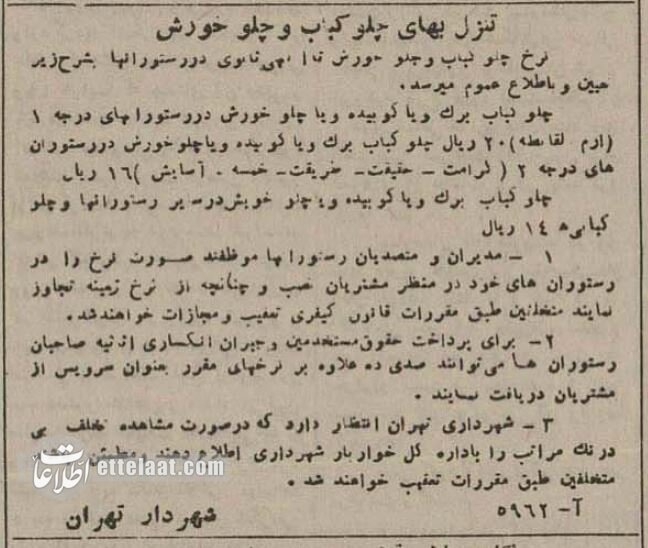 تنزل بهای چلو کباب و چلو خورش
نرخ چلو کباب و چلو خورش تا آگهی ثانوی در رستورانها بشرح زیر
تعیین و باطلاع عموم میرسد.
چلو کباب برك و یا کوبیده و یا چلو خورش در رستورانهای درجه ۱
(ارم لقانطه) ۲۰ ریال چلو کباب برك و یا کوبیده و یا چلو خورش در رستوران
های درجه ۲ (کرامت ـ حقیقت ـ طریقت ـ خمسه ـ آسایش) ۱۶ ریال
چلو کباب برك و یا کوبیده و یا چلو خورش در سایر رستورانها و چلو
کبابی‌ها ۱۴ ریال
۱ ـ مدیران و متصدیان رستورانها موظفند صورت نرخ را در
رستوران های خود در منظر مشتریان نصب و چنانچه از نرخ زمینه تجاوز
نمایند متخلفین طبق مقررات قانون کیفری تعقیب و مجازات خواهند شد.
۲ـ برای پرداخت حقوق مستخدمین و جبران انکساری اثاثیه صاحبان
رستوران ها می‌توانند صدی ده علاوه بر نرخهای مقرر بعنوان سرویس از
مشتریان دریافت نمایند.
۳ ـ شهرداری تهران انتظار دارد که در صورت مشاهده تخلف بی
درنك مراتب را باداره کل خواربار شهرداری اطلاع دهند و مطمئن
متخلفین طبق مقررات تعقیب خواهند شد.
آ ـ ۵۹۶۲ شهردار تهران
اطلاعات ettelaat.com